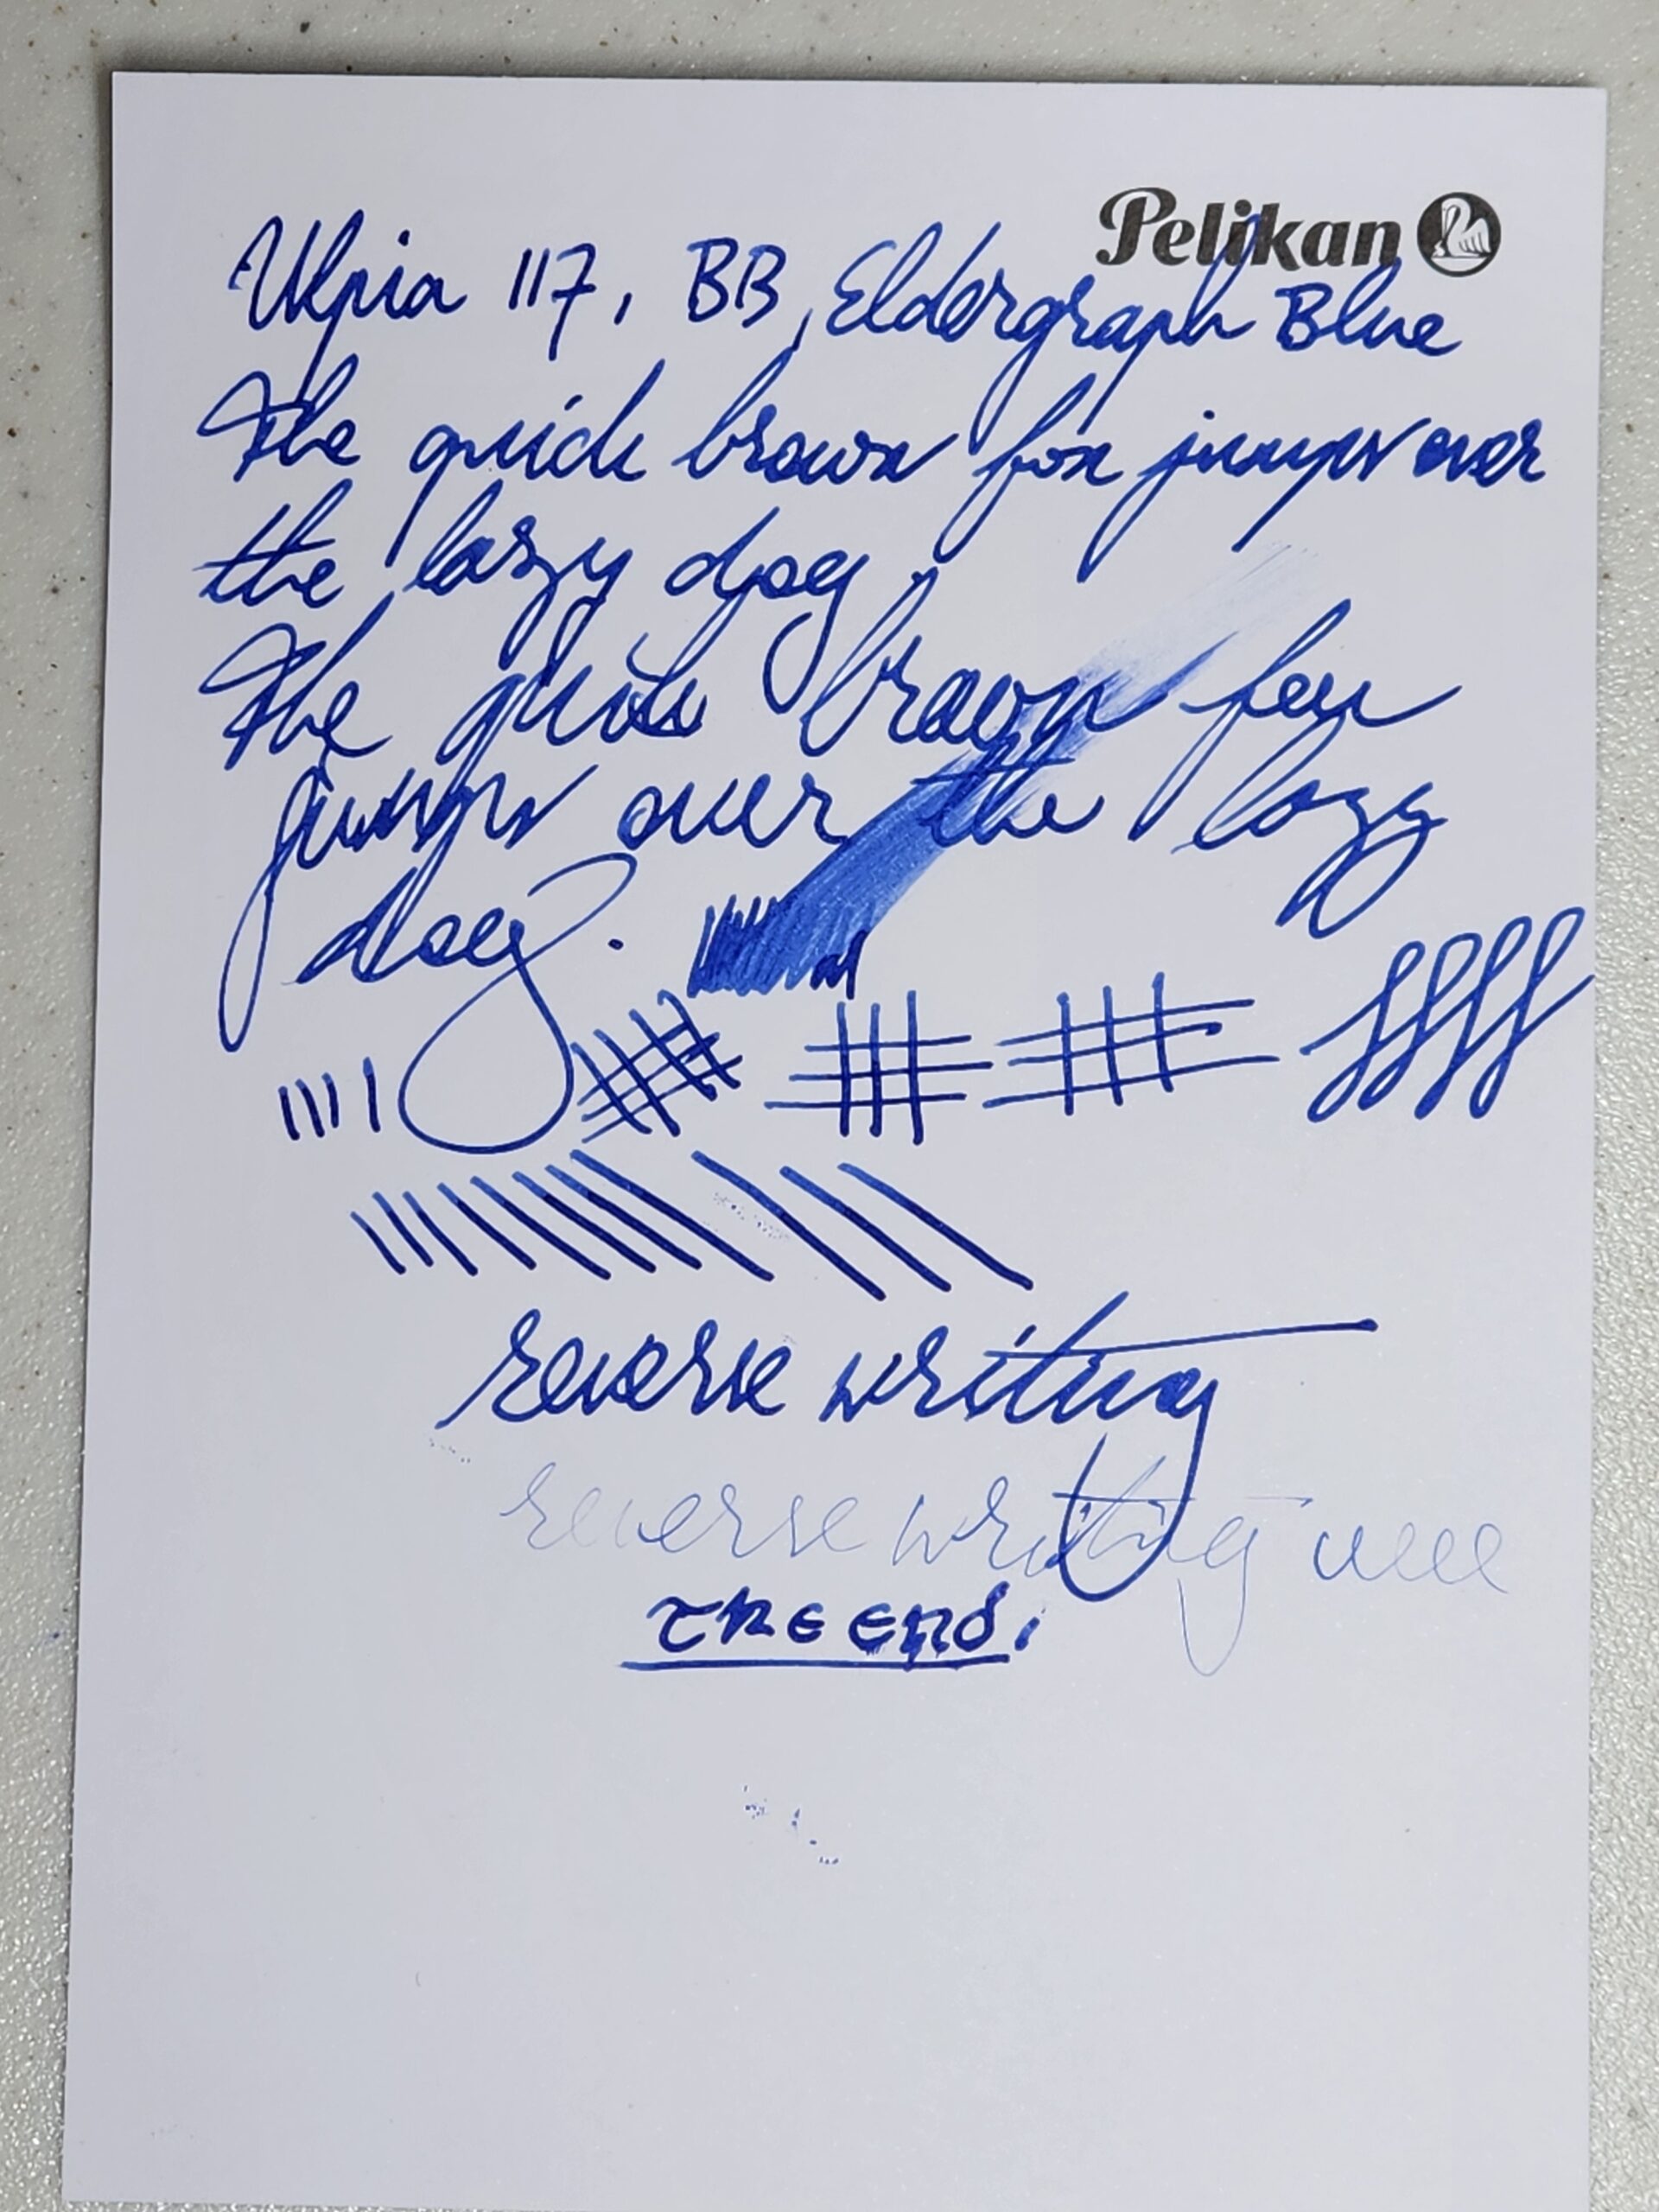 Pelikan
Ulpia 117, BB, Eldergraph Blue
The quick brown fox jumps over
the lazy dog.
The quick brown fox
jumps over the lazy
dog.
reverse writing
reverse writing
THE END.